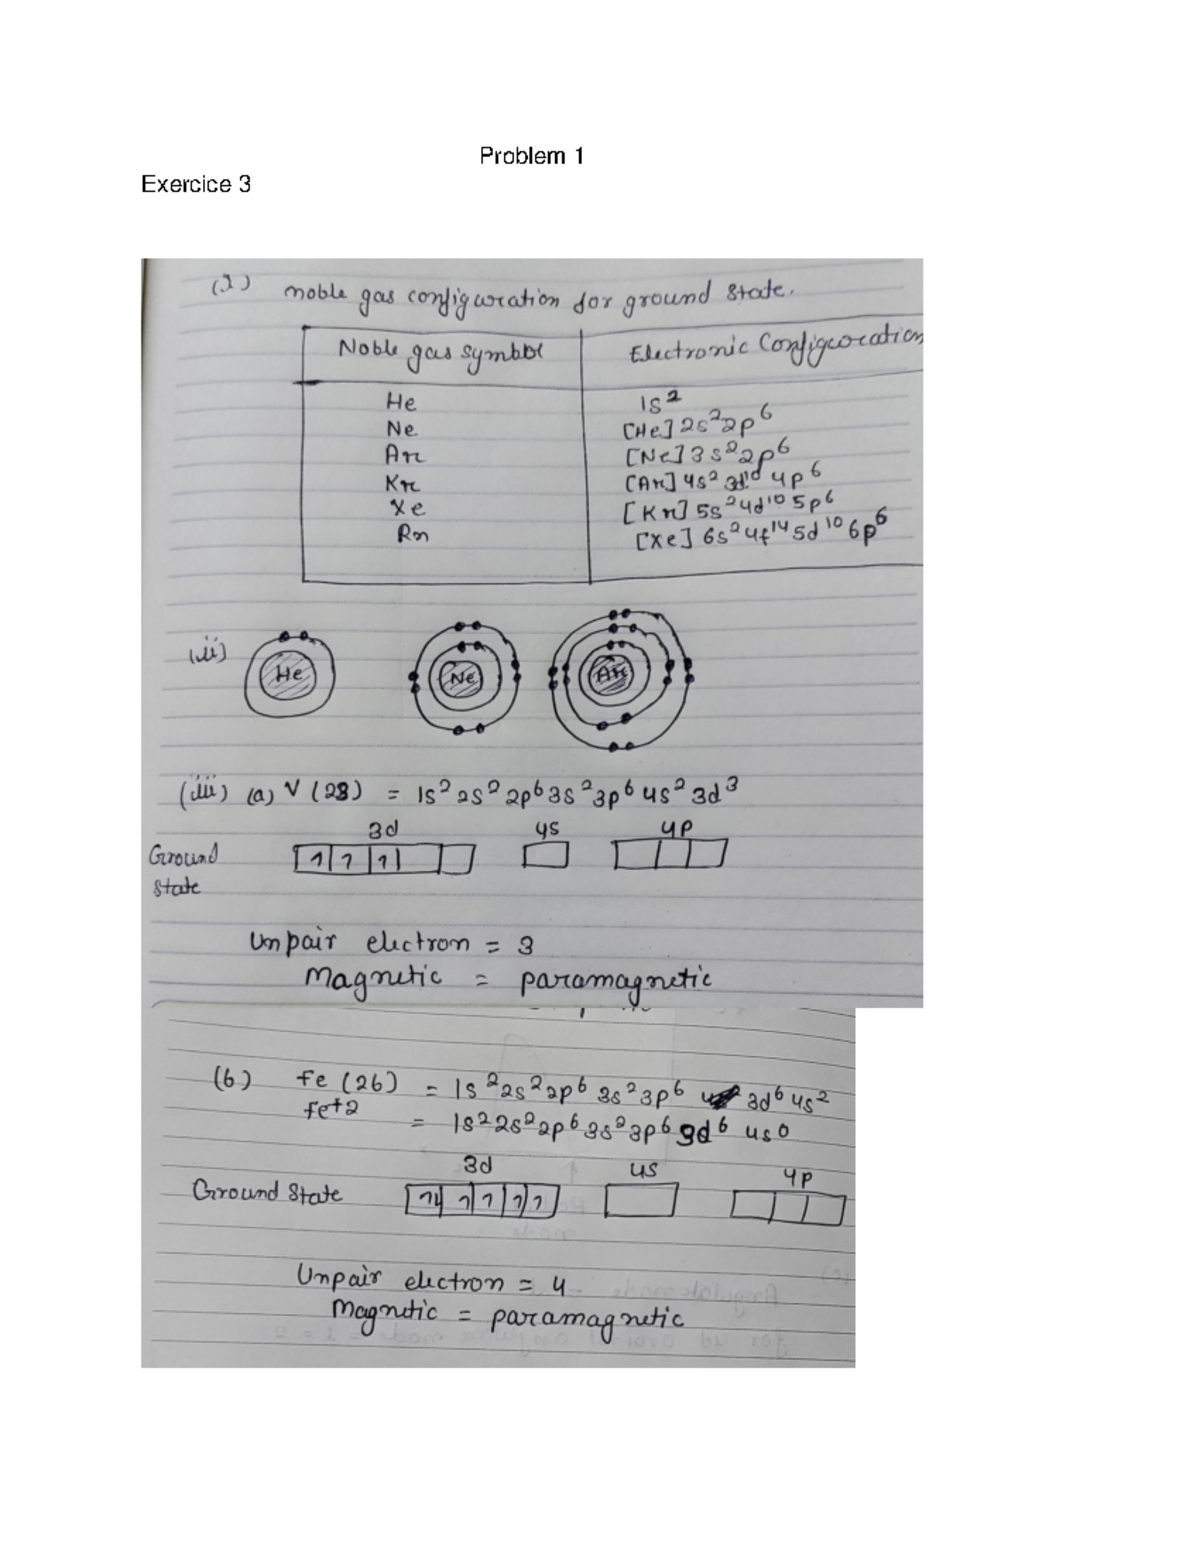 Problem 1
Exercice 3
(i) noble gas configuration for ground state.
Noble gas symbol Electronic Configuration
He 1s²
Ne [He] 2s² 2p⁶
Ar [Ne] 3s² 2p⁶
Kr [Ar] 4s² 3d¹⁰ 4p⁶
Xe [Kr] 5s² 4d¹⁰ 5p⁶
Rn [Xe] 6s² 4f¹⁴ 5d¹⁰ 6p⁶
(ii) He Ne Ar
(iii) (a) V (23) = 1s² 2s² 2p⁶ 3s² 3p⁶ 4s² 3d³
3d 4s 4p
Ground
state
1 1 1
Unpair electron = 3
Magnetic = paramagnetic
(b) fe (26) = 1s² 2s² 2p⁶ 3s² 3p⁶ 3d⁶ 4s²
fe+2 = 1s² 2s² 2p⁶ 3s² 3p⁶ 3d⁶ 4s⁰
3d 4s 4p
Ground state 1⇂ 1 1 1 1
Unpair electron = 4
Magnetic = paramagnetic